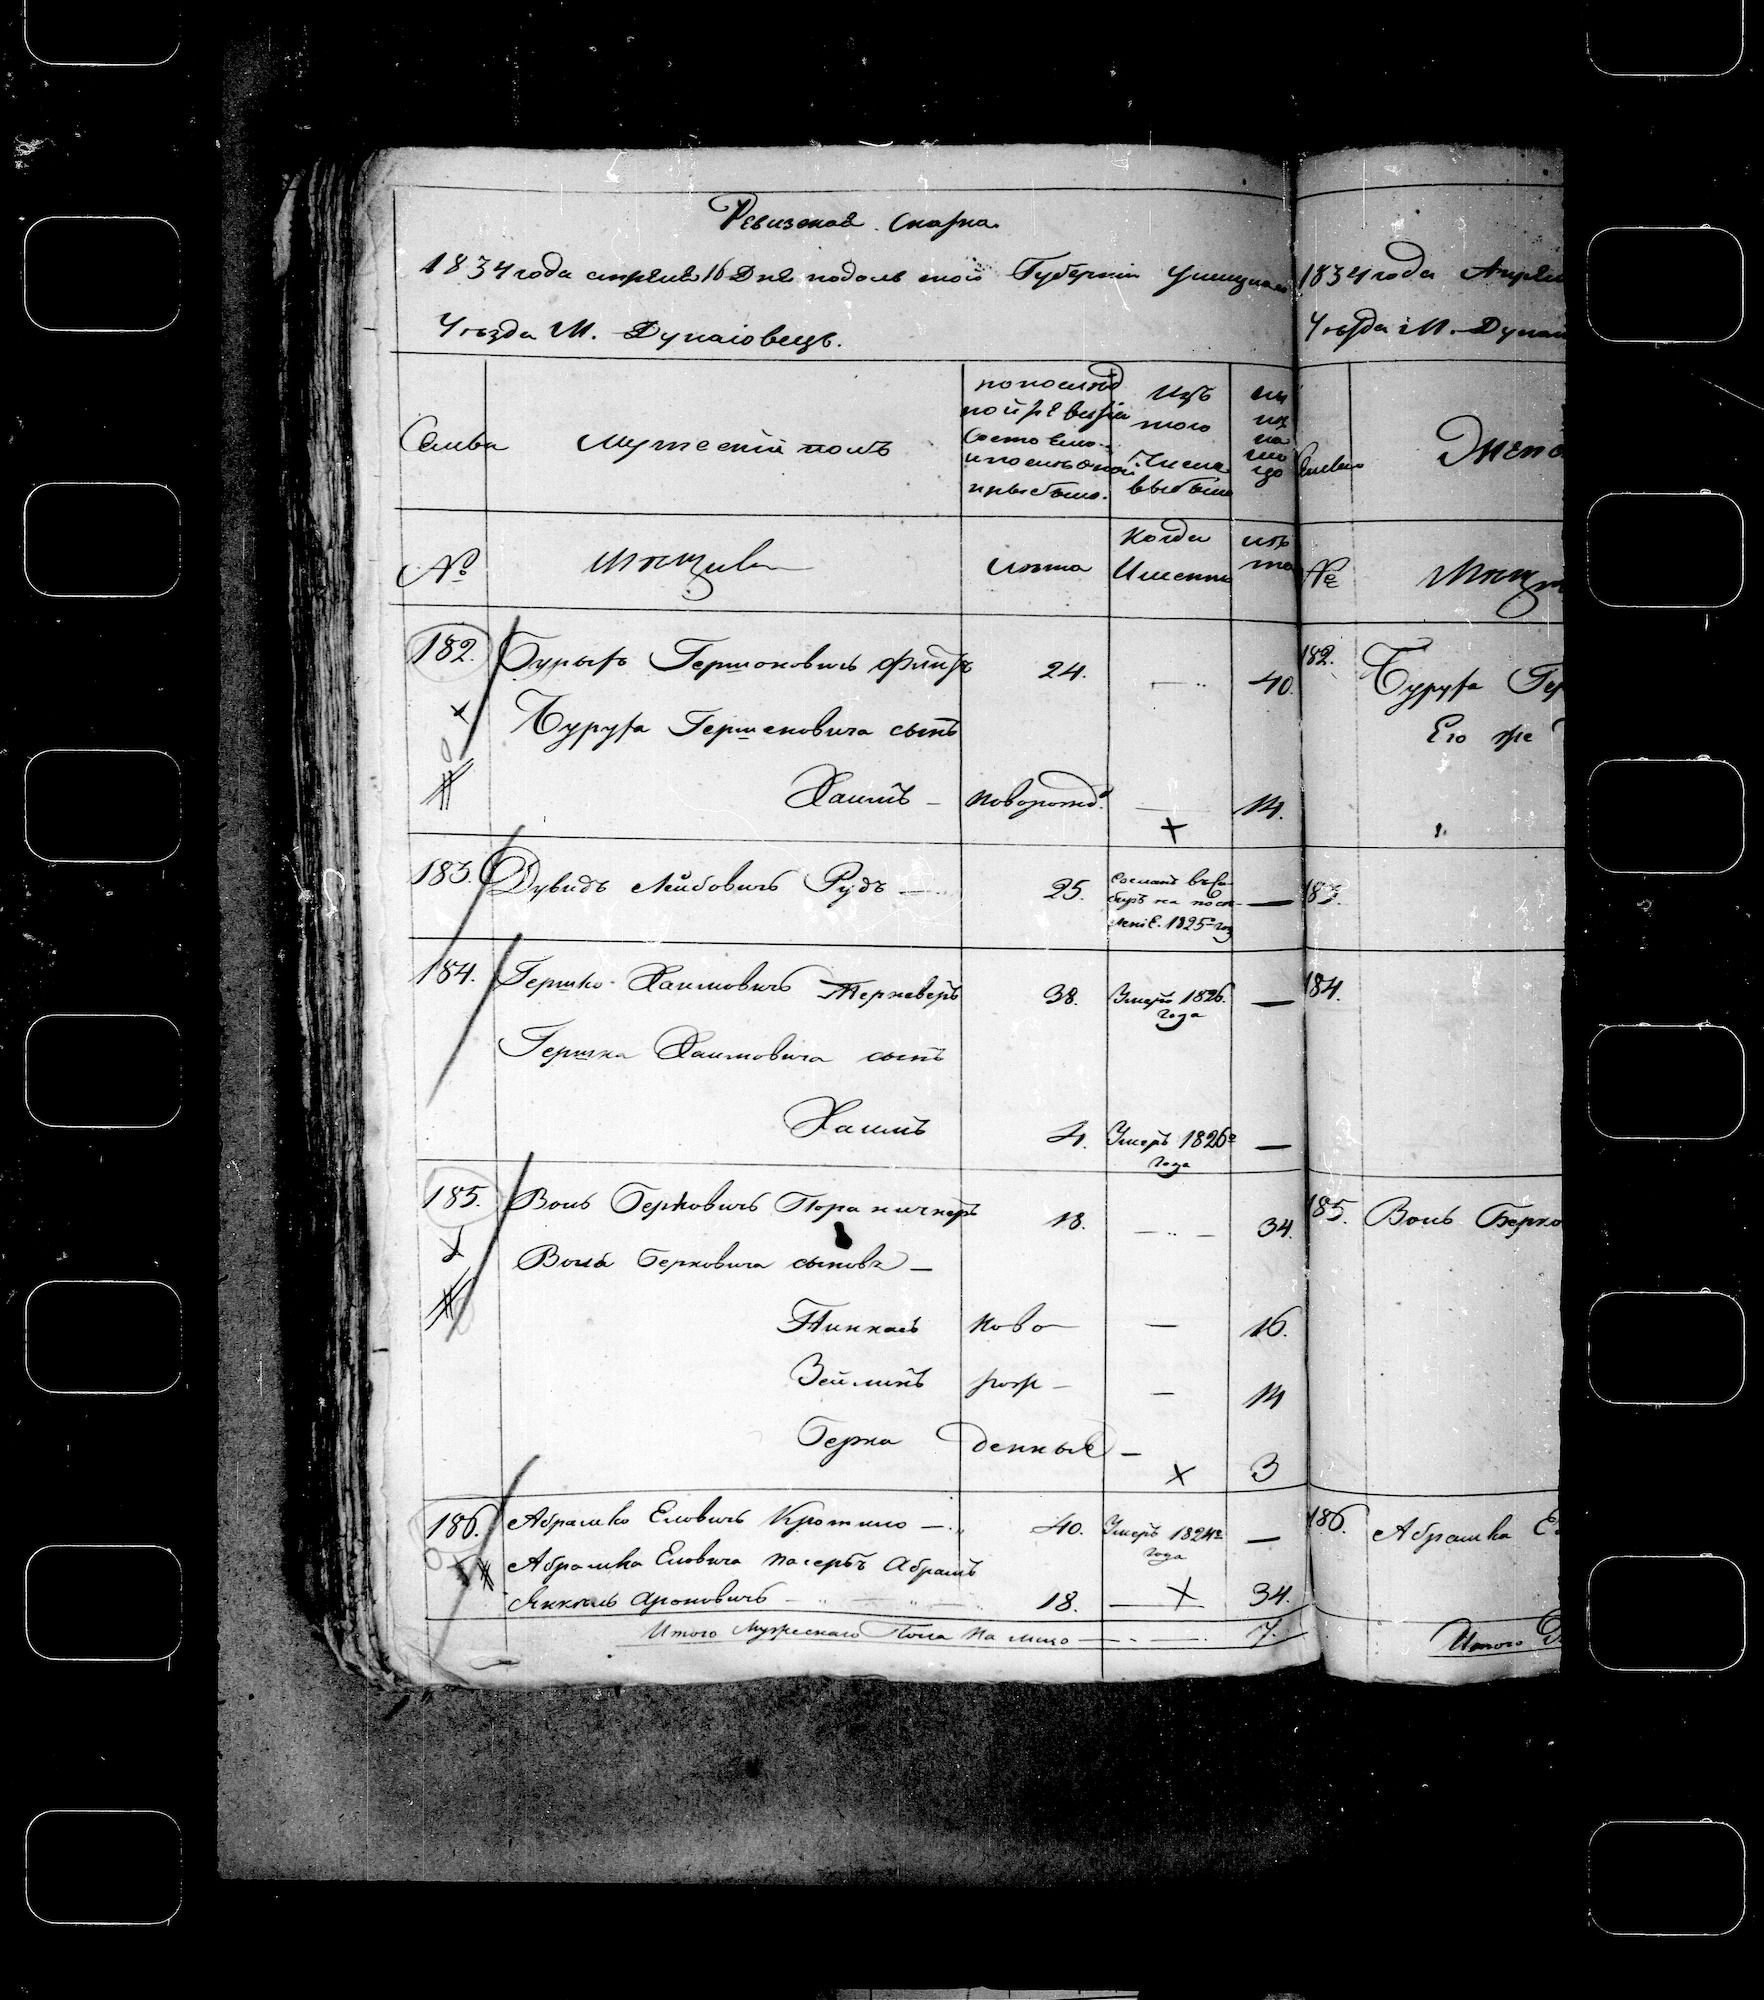 Ревизская Скаска
1834 года апреля 16 Дня подольской Губерніи Ушицкаго
Уезда М. Дунаіовецъ.
Семьи
Мужескій полъ
по послѣд
ной ревизіи
состояло
и после оной
прибыло.
Изъ
того
Числа
выбыло
ны
не
на
ли
цо
№
Мѣщане
лѣта
Когда
Именно
лѣ
та
182. Бурыхъ Гершковичъ 24. — 40.
Буруха Гершковича сынъ
Хаимъ — новорожд. — 14.
183. Дувидъ Лейбовичъ Рудъ — 25. Сосланъ въ Си
биръ на посе-
леніе. 1825го год —
184. Гершко Хаимовичъ 38. Умеръ 1826. —
года
Гершка Хаимовича сынъ
Хаимъ 4. Умеръ 1826го —
года
185. Волъ Берковичъ 18. — 34.
Воля Берковича сыновя —
Пинкасъ ново — 16.
Зейликъ рож — — 14
Берка денные — 3
186. Абрамко Еловичъ 40. Умеръ 1824го —
года
Абрамка Еловича Абрамъ
Янкель Ароновичъ 18. — 34.
Итого Мужескаго Пола На лицо — 7.
1834 года Апреля
Уезда М. Дунаи
Семьи
Женс
№
Мѣщ
182. Буруха Гер
Его же
183.
184.
185. Волъ Берко
186. Абрамка Е
Итого